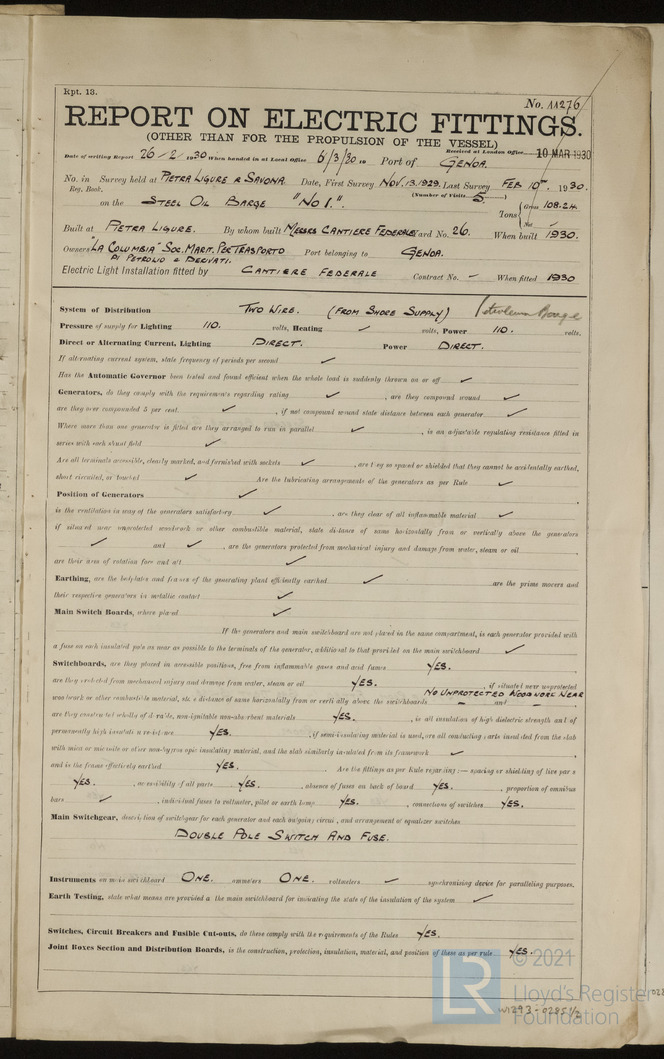 Rpt. 13.
No. 11276
REPORT ON ELECTRIC FITTINGS.
(OTHER THAN FOR THE PROPULSION OF THE VESSEL)
Date of writing Report 26/2/1930 When handed in at Local Office 6/3/30 19 Port of GENOA. Received at London Office 10 MAR 1930
No. in Survey held at PIETRA LIGURE & SAVONA. Date, First Survey NOV. 13. 1929. Last Survey FEB 10th. 1930.
Reg. Book. (Number of Visits 5.)
on the STEEL OIL BARGE "No 1." Tons Gross 108.24 Net —
Built at PIETRA LIGURE. By whom built MESSRS CANTIERE FEDERALE Yard No. 26. When built 1930.
Owners "LA COLUMBIA" SOC. MARIT. PER TRASPORTO DI PETROLIO & DERIVATI. Port belonging to GENOA.
Electric Light Installation fitted by CANTIERE FEDERALE Contract No. — When fitted 1930
System of Distribution TWO WIRE. (FROM SHORE SUPPLY) Petroleum Barge
Pressure of supply for Lighting 110. volts, Heating ✓ volts, Power 110. volts.
Direct or Alternating Current, Lighting DIRECT. Power DIRECT.
If alternating current system, state frequency of periods per second ✓
Has the Automatic Governor been tested and found efficient when the whole load is suddenly thrown on or off ✓
Generators, do they comply with the requirements regarding rating ✓, are they compound wound ✓
are they over compounded 5 per cent. ✓, if not compound wound state distance between each generator ✓
Where more than one generator is fitted are they arranged to run in parallel ✓, is an adjustable regulating resistance fitted in
series with each shunt field ✓
Are all terminals accessible, clearly marked, and furnished with sockets ✓, are they so spaced or shielded that they cannot be accidentally earthed,
short circuited, or touched ✓ Are the lubricating arrangements of the generators as per Rule ✓
Position of Generators ✓
is the ventilation in way of the generators satisfactory ✓, are they clear of all inflammable material ✓
if situated near unprotected woodwork or other combustible material, state distance of same horizontally from or vertically above the generators
✓ and ✓, are the generators protected from mechanical injury and damage from water, steam or oil
are their axes of rotation fore and aft ✓
Earthing, are the bedplates and frames of the generating plant efficiently earthed ✓ are the prime movers and
their respective generators in metallic contact ✓
Main Switch Boards, where placed ✓
If the generators and main switchboard are not placed in the same compartment, is each generator provided with
a fuse on each insulated pole as near as possible to the terminals of the generator, additional to that provided on the main switchboard ✓
Switchboards, are they placed in accessible positions, free from inflammable gases and acid fumes YES.
are they protected from mechanical injury and damage from water, steam or oil YES., if situated near unprotected
woodwork or other combustible material, state distance of same horizontally from or vertically above the switchboards NO UNPROTECTED WOODWORK NEAR – and –
are they constructed wholly of durable, non-ignitable non-absorbent materials YES., is all insulation of high dielectric strength and of
permanently high insulation resistance YES., if semi-insulating material is used, are all conducting parts insulated from the slab
with mica or micanite or other non-hygroscopic insulating material, and the slab similarly insulated from its framework ✓
and is the frame effectively earthed YES. Are the fittings as per Rule regarding:— spacing or shielding of live parts
YES., accessibility of all parts YES., absence of fuses on back of board YES., proportion of omnibus
bars ✓, individual fuses to voltmeter, pilot or earth lamp YES., connections of switches YES.
Main Switchgear, description of switchgear for each generator and each outgoing circuit, and arrangement of equalizer switches
DOUBLE POLE SWITCH AND FUSE.
Instruments on main switchboard ONE. ammeters ONE. voltmeters ✓ synchronising device for paralleling purposes.
Earth Testing, state what means are provided on the main switchboard for indicating the state of the insulation of the system ✓
Switches, Circuit Breakers and Fusible Cut-outs, do these comply with the requirements of the Rules YES.
Joint Boxes Section and Distribution Boards, is the construction, protection, insulation, material, and position of these as per rule YES.
LR © 2021
Lloyd's Register
Foundation
W1293-0285 1/2